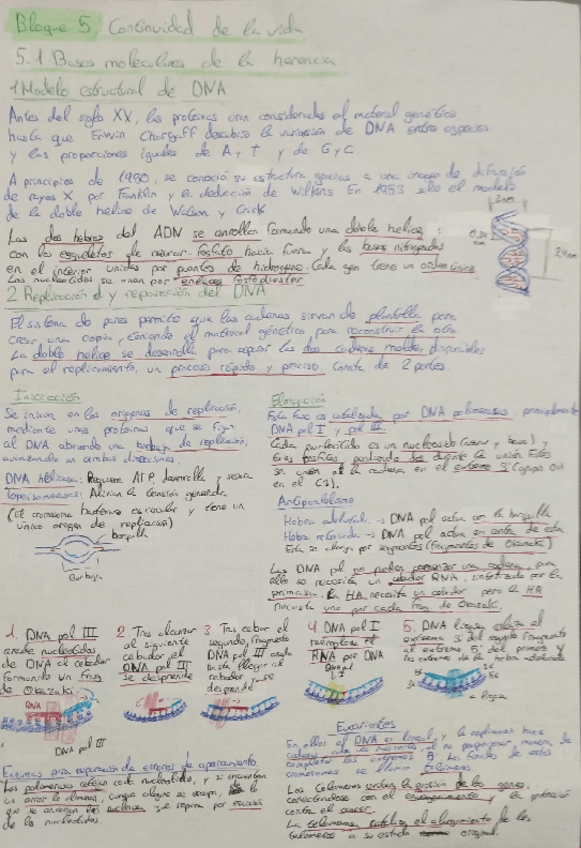 Bloque 5. Continuidad de la vida
5.1 Bases moleculares de la herencia
1 Modelo estructural de DNA
Antes del siglo XX, las proteínas eran consideradas el material genético,
hasta que Erwin Chargaff descubrió la variación de DNA entre especies
y las proporciones iguales de A y T y de G y C.
A principios de 1950, se conoció su estructura gracias a una imagen de difracción
de rayos X por Franklin y la deducción de Wilkins En 1953 salió el modelo
de la doble hélice de Watson y Crick
Las dos hebras del ADN se enrollan formando una doble hélice:
con los esqueletos de azúcar-fosfato hacia fuera y las bases nitrogenadas
en el interior unidas por puentes de hidrógeno. Cada gen tiene un orden único
Los nucleótidos se unen por enlaces fosfodiéster
2nm
0,34 nm
2 Replicación y reparación del DNA
El sistema de pares permite que las cadenas sirvan de plantilla para
crear una copia, el material genético para reconstruir la otra
La doble hélice se desenrolla para separar las dos cadenas moldes, disponibles
para el replicamiento, un proceso rápido y preciso Consta de 2 partes.
Iniciación
Se inician en los orígenes de replicación,
mediante unas proteínas que se fijan
al DNA abriendo una burbuja de replicación,
avanzando en ambas direcciones.
DNA helicasa: Requiere ATP, desenrolla y separa
Topoisomerasas: Alivian la tensión generada.
(El cromosoma bacteriano es circular y tiene un
único origen de replicación)
horquilla
Burbuja
Elongación
Esta fase es catalizada por DNA polimerasas, principalmente
DNA pol I y pol III.
Cada es un nucleósido (azúcar y base) y
tres fosfatos perdiendo dos durante la unión Estos
se unen a la cadena en el extremo 3' (grupo OH
en el C3).
Antiparalelismo
Hebra adelantada → DNA pol actúa en la horquilla
Hebra retrasada → DNA pol actúa en contra de esta
Esta se alarga por segmentos (fragmentos de Okazaki)
Las DNA pol no pueden comenzar una cadena, para
ello se necesita un cebador RNA, sintetizado por la
primasa. La HA necesita un cebador pero la HR
necesita uno por cada frag. de Okazaki.
1. DNA pol III
añade nucleótidos
de DNA al cebador
formando un frag
de Okazaki
RNA
DNA pol III
2 Tras alcanzar
al siguiente
cebador el
DNA pol III
se desprende
3 Tras cebar el
segundo, fragmento
DNA pol III añade
hasta llegar al
cebador y se
desprende
4 DNA pol I
reemplaza el
RNA por DNA
5. DNA ligasa enlaza el
extremo 3' del segundo fragmento
al extremo 5' del primero y
ligasa
Enzimas para reparación de errores de apareamiento
Las polimerasas cotejan cada nucleótido, y si encuentran
un error lo eliminan, aunque alguno se escapa, lo
que se encargan las nucleasas se repara por escisión
de los nucleótidos.
Eucariontes
En ellos el DNA es lineal, y la replicación hace
cadenas cada vez más cortas, al no proporcionar manera de
completar los extremos 5'. Los finales de estos
cromosomas se llaman telómeros
Los telómeros evitan la erosión de los genes,
conectándose con el envejecimiento y la protección
contra el cáncer.
La telomerasa cataliza el alargamiento de los
telómeros a su estado original.